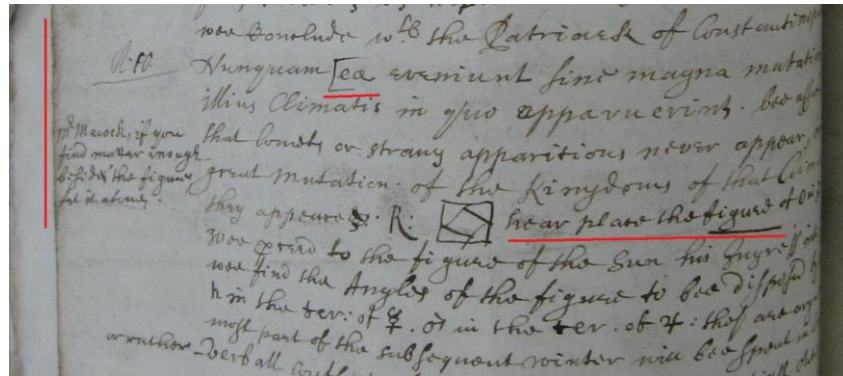 wee Conclude wth the Patriarck of Constantinop
Nunquam [ea eveniunt sine magna mutatio
illius Climatis in quo apparuerint. bee
that Comets or strang apparitions never appear
great Mutation of the Kingdoms of that Clim
they appeare R: hear place the figure of
Wee to the figure of the Sun his Ingress
wee find the Angles of the figure to bee disposed
♄ in the ter: of ☿. ♂ in the ter. of ♃: they are
most part of the subsequent winter will bee spent in
verball
mr Macock, if you
find matter inough
besides the figure
let it alone.
or rather